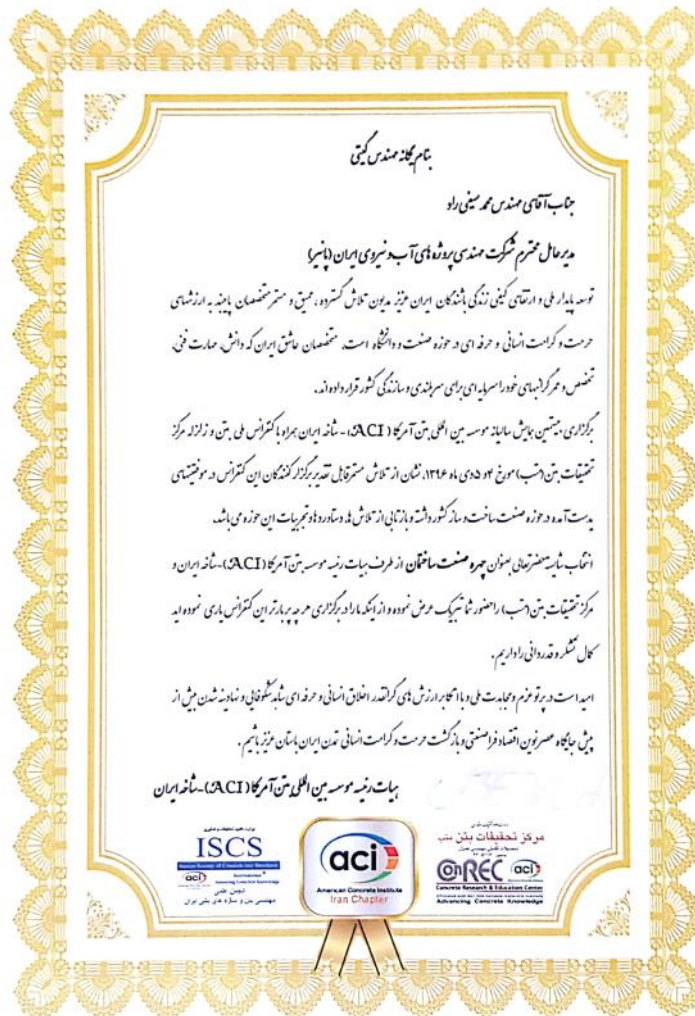 بنام یگانه مهندس گیتی
جناب آقای مهندس محمد سیفی راد
مدیرعامل محترم شرکت مهندسی پروژه های آب و نیروی ایران (پانیر)
توسعه پایدار ملی و ارتقای کیفی زندگی باشندگان ایران عزیز مدیون تلاش گسترده، عمیق و مستمر متخصصان پایبند به ارزشهای
حرمت و کرامت انسانی و حرفه ای در حوزه صنعت و دانشگاه است. متخصصان عاشق ایران که دانش، مهارت فنی،
تخصص و عمر گرانبهای خود را سرمایه ای برای سربلندی و سازندگی کشور قرار داده اند.
برگزاری بیستمین همایش سالیانه موسسه بین المللی بتن آمرکا (ACI) - شاخه ایران همراه با کنفرانس ملی بتن و زلزله مرکز
تحقیقات بتن (متب) مورخ ۴ و ۵ دی ماه ۱۳۹۶، نشان از تلاش مستمر قابل تقدیر برگزار کنندگان این کنفرانس در موفقیتهای
بدست آمده در حوزه صنعت ساخت و ساز کشور داشته و بازتابی از تلاش ها، دستاوردها و تجربیات این حوزه می باشد.
انتخاب شایسته حضرتعالی بعنوان چهره صنعت ساختمان از طرف هیات رئیسه موسسه بتن آمرکا (ACI) - شاخه ایران و
مرکز تحقیقات بتن (متب) را حضور شما تبریک عرض نموده و از اینکه ما را در برگزاری هر چه پر بارتر این کنفرانس یاری نموده اید
کمال تشکر و قدردانی را داریم.
امید است در پرتو عزم و مجاهدت ملی و با اتکا بر ارزش های گرانقدر اخلاق انسانی و حرفه ای شاهد شکوفائی و نهادینه شدن بیش از
پیش جایگاه عصر نوین اقتصاد فراصنعتی و بازگشت حرمت و کرامت انسانی تمدن ایران باستان عزیز باشیم.
هیات رئیسه موسسه بین المللی بتن آمرکا (ACI) - شاخه ایران
وزارت علوم، تحقیقات و فناوری
ISCS
Iranian Society of Concrete and Structures
aci
Advancing Concrete Knowledge
انجمن علمی
مهندسی بتن و سازه های بتنی ایران
aci
American Concrete Institute
Iran Chapter
مرکز تحقیقات بتن متب
ConREC
aci
Concrete Research & Education Center
Advancing Concrete Knowledge